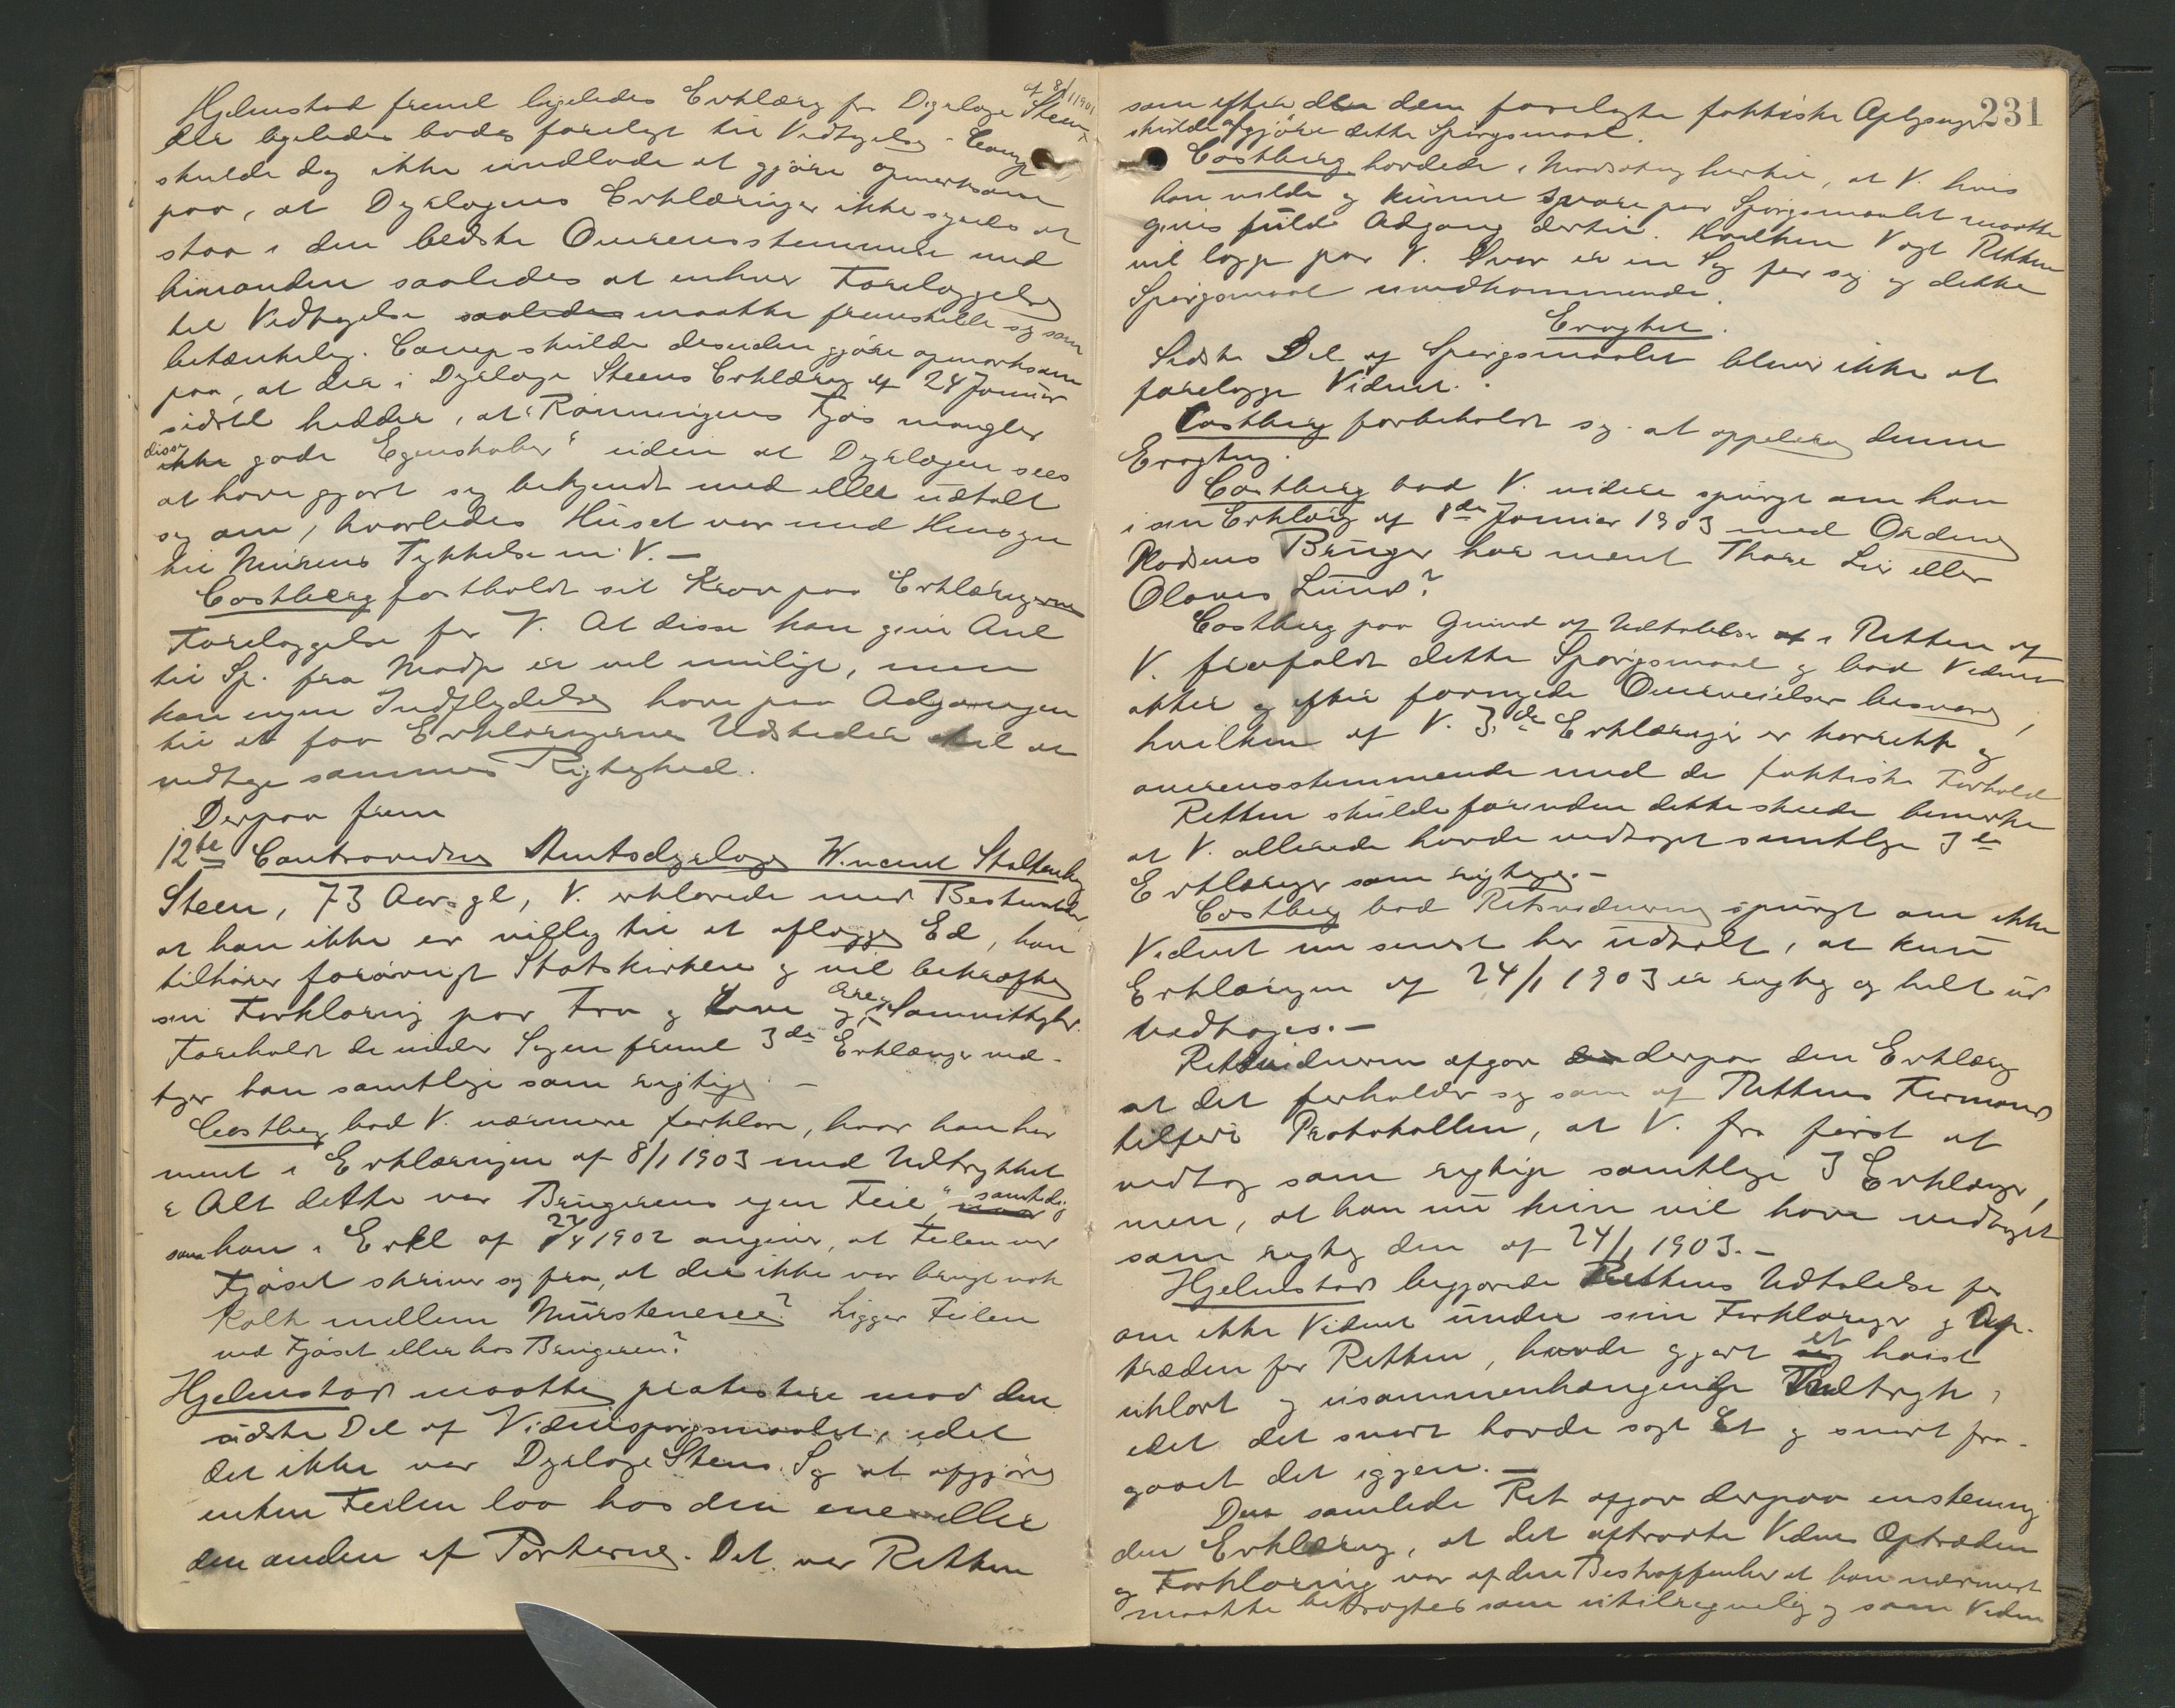 Hjelmstad freml ligeledes Erklærg fra Dyrlæge Steen
af 8/1 1901
der ligeledes bades forelagt til Vedtagelse. Comp
skulde dog ikke undlade at gjøre opmerksom
paa, at Dyrlægens Erklæringer ikke synes at
staa i den bedste Overensstemmelse med
hinanden saaledes at enhver Forelæggelse
til Vedtagelse saaledes maatte fremstille sig som
betænkelig. Comp skulde desuden gjøre opmerksom
paa, at der i Dyrlæge Steens Erklæring af 24 Januar
sidstl hedder, at "Rønningens Fjøs mangler
disse
ikke gode Egenskaber" uden at Dyrlægen sees
at have gjort sig bekjendt med eller udtalt
sig om, hvorledes Huset var med Hensyn
til Murens Tykkelse m. V. —
Castberg fastholdt sit Krav paa Erklæringerne
Forelæggelse for V. At disse kan give Anl
til Sp. fra Modp er vel muligt, men
kan ingen Indflydelse have paa Adgangen
til at faa Erklæringerne Udsteder til at
vedtage sammes Rigtighed.
Derpaa frem
12te Contravidne Amtsdyrlæge Wincent Stoltenberg
Steen, 73 Aar gl, V. erklærede med Bestemthed
at han ikke er villig til at aflægge Ed, han
tilhører forøvrigt Statskirken og vil bekræfte
sin Forklaring paa Tro og Love og Ære Samvittighed.
Foreholdt de under Sagen freml 3de Erklæringer ved-
tager han samtlige som rigtige. —
Castberg bad V. nærmere forklare, hvor han har
ment i Erklæringen af 8/1 1903 med Udtrykket
"Alt dette var Brugerens egen Feil" samtidig
som han i Erkl af 27/4 1902 angiver, at Feilen ved
Fjøset skriver sig fra, at der ikke var brugt nok
Kalk mellem Murstenene? Ligger Feilen
ved Fjøset eller hos Brugeren?
Hjelmstad maatte protestere mod den
sidste Del af Vidnespørgsmaalet, idet
det ikke var Dyrlæge Steens Sag at afgjøre
enten Feilen laa hos den ene eller
den anden af Parterne. Det var Retten
231
som efter de dem forelagte faktiske Oplysninger
skulde afgjøre dette Spørgsmaal.
Castberg hævdede i Modsætng hertil, at V. hvis
han vilde og kunne svare paa Spørgsmaalet maatte
gives fuld Adgang dertil. Hvilken Vægt Retten
vil lægge paa V. Svar er en Sag for sig og dette
Spørgsmaal uvedkommende.
Eragtet.
Sidste Del af Spørgsmaalet bliver ikke at
forelægge Vidnet.
Castberg forbeholdt sig at appellere denne
Eragtng.
Castberg bad V. videre spurgt om han
i sin Erklærg af 8de Januar 1903 med Ordene
Pladsens Bruger har ment Thore Lie eller
Olaves Lund?
Castberg paa Grund af Udtalelse i Retten af
V. frafaldt dette Spørgsmaal og bad Vidnet
atter og efter fornyede Overveielser besvare,
hvilken af V. 3de Erklæringer er korrekt og
overensstemmende med de faktiske Forhold
Retten skulde forinden dette skeede bemerke
at V. allerede havde vedtaget samtlige 3de
Erklæringer som rigtige. —
Castberg bad Retsvidnerne spurgt om ikke
Vidnet nu senest har udtalt, at kun
Erklæringen af 24/1 1903 er rigtig og helt ud
vedtages. —
Retsvidnerne afgav derpaa den Erklærg
at det forholder sig som af Rettens Formand
tilført Protokollen, at V. fra først af
vedtog som rigtige samtlige 3 Erklæringer,
men, at han nu kun vil have vedtaget
som rigtig den af 24/1 1903. —
Hjelmstad begjærede Rettens Udtalelse for
om ikke Vidnet under sine Forklaringer og Op-
træden for Retten, havde gjort et høist
uklart og usammenhængende Indtryk,
idet det snart havde sagt Et og snart fra-
gaaet det igjen. —
Den samlede Ret afgav derpaa enstemmig
den Erklæring, at det aftraadte Vidnes Optræden
og Forklaring var af den Beskaffenhed at han nærmest
maatte betragtes som utilregnelig og som Vidne